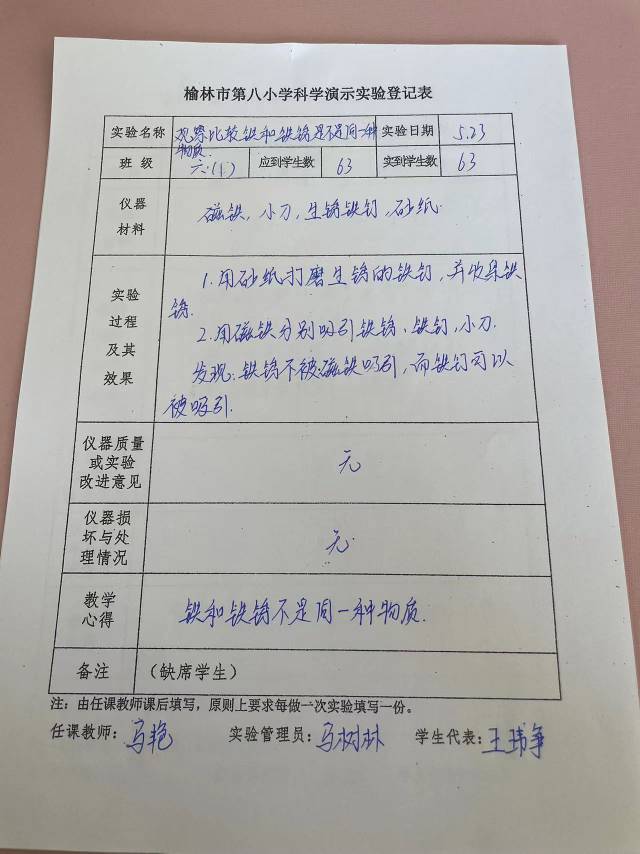 榆林市第八小学科学演示实验登记表
实验名称 观察比较铁和铁锈是不是同一种物质. 实验日期 5.23
班 级 六.(1) 应到学生数 63 实到学生数 63
仪器材料 磁铁, 小刀, 生锈铁钉, 砂纸.
实验过程及其效果
1. 用砂纸打磨生锈的铁钉, 并收集铁
锈.
2. 用磁铁分别吸引铁锈、铁钉, 小刀.
发现: 铁锈不被磁铁吸引, 而铁钉可以
被吸引.
仪器质量或实验改进意见 无
仪器损坏与处理情况 无.
教学心得 铁和铁锈不是同一种物质.
备注 (缺席学生)
注: 由任课教师课后填写, 原则上要求每做一次实验填写一份。
任课教师: 马艳 实验管理员: 马树林 学生代表: 王玮争